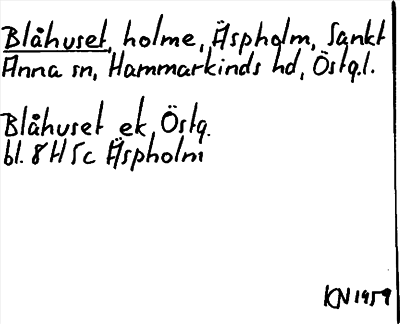 Blåhuset, holme, Äspholm, Sankt
Anna sn, Hammarkinds hd, Östg.l.
Blåhuset ek, Östg.
bl. 8H 5c Äspholm
KN 1959